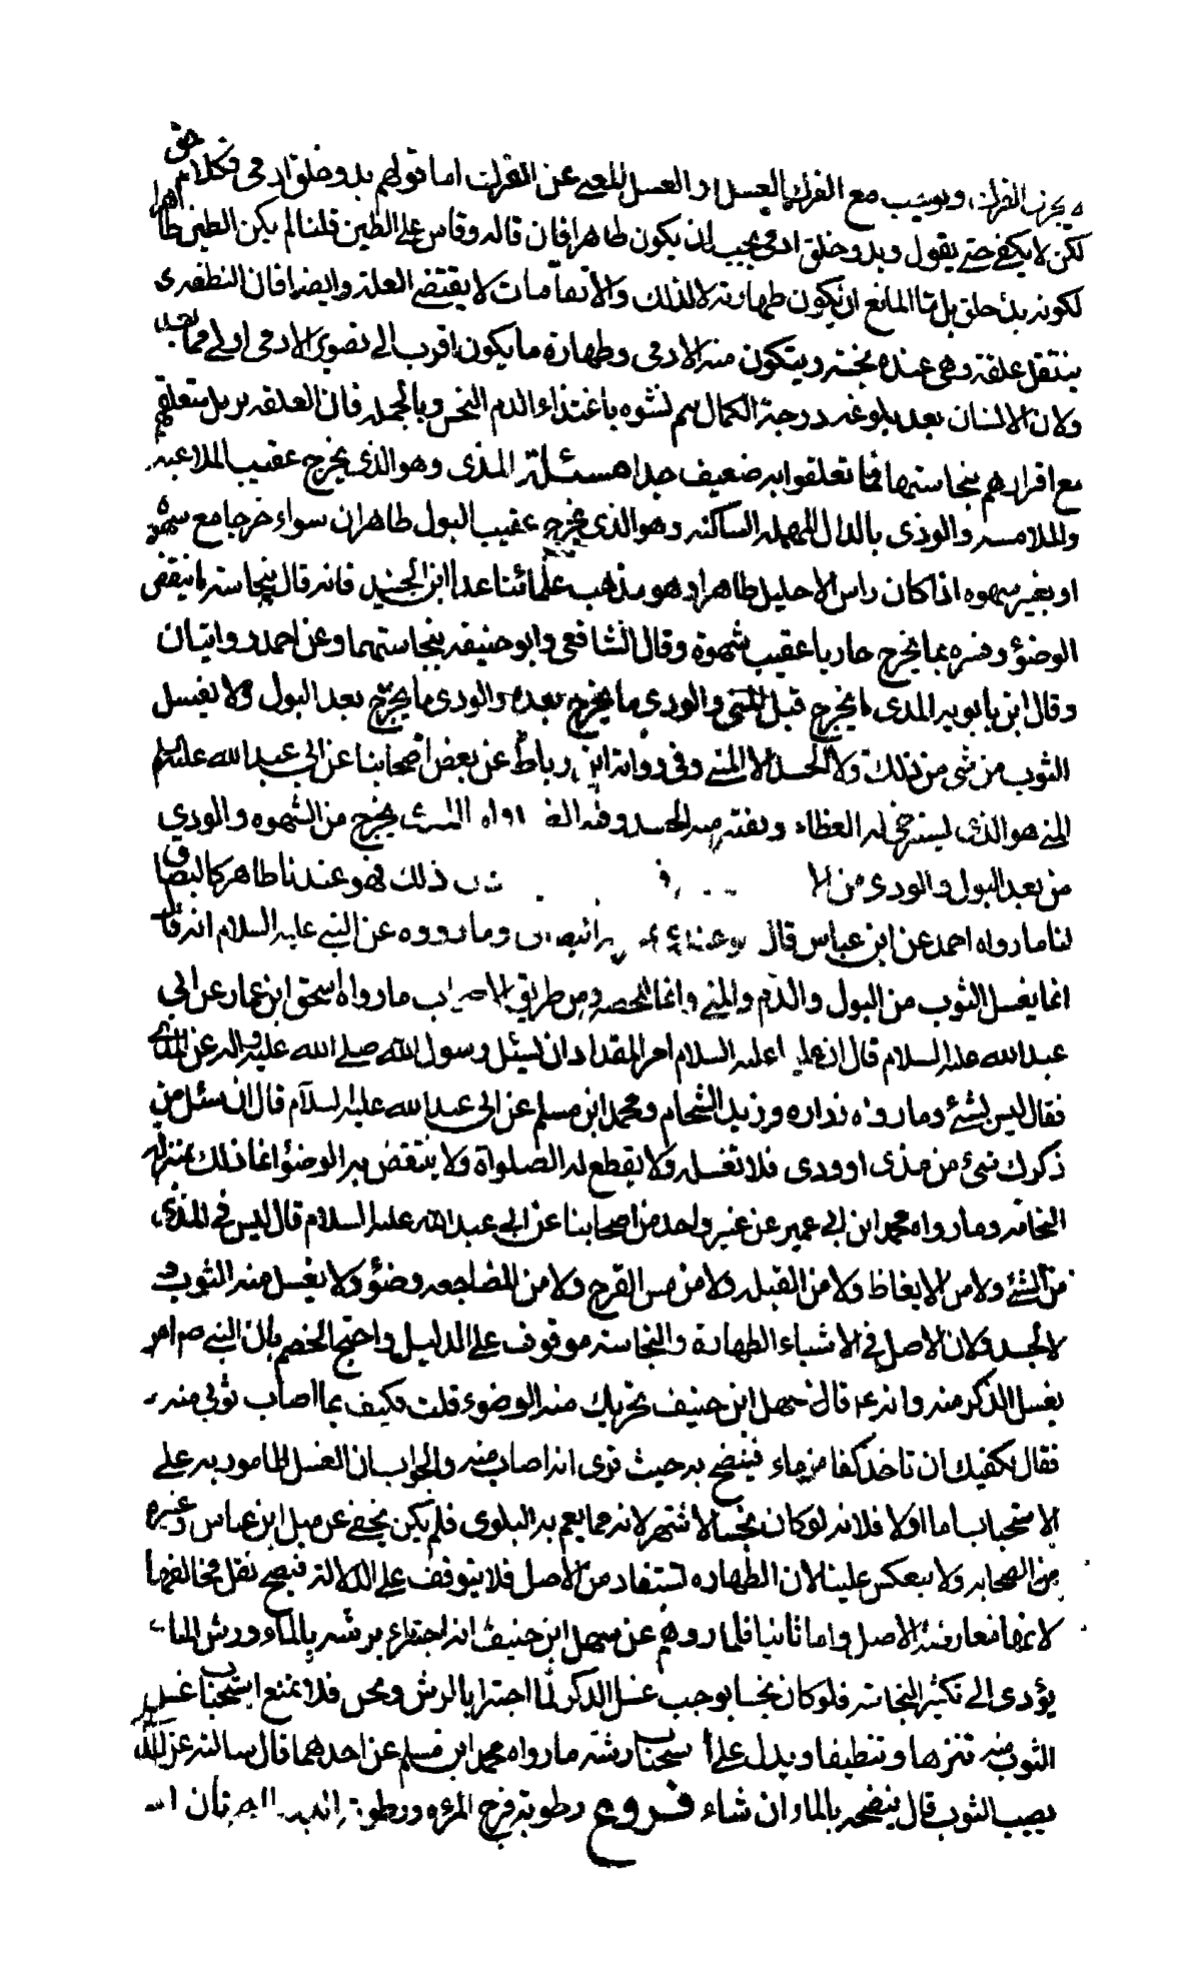 ه يجزى الفرك، ويوجب مع الفرك الغسل او الغسل المغنى عن الفرك اما قولهم بدو خلق ادمى فكلام حق
لكن لا يكفى حتى يقول وبدو خلق ادمى يجب ان يكون طاهرا فان قاله وقاس على الطين قلنا لم يكن الطين طاهرا
لكونه بدء خلق بل ما المانع ان يكون طهارته لا لذلك والاتفاقيات لا يقتضى العلة وايضا فان النطفة
ينتقل علقة وهى عنده نجسة ويتكون منه الادمى وطهارة ما يكون اقرب الى تصوير الادمى اولى مما بعد
ولان الانسان بعد بلوغه درجة الكمال يتم نشوه باغتذاء الدم النجس وبالجملة فان العلقة يزيل متعلقهم
مع اقرارهم بنجاستها فما تعلقوا به ضعيف جدا مسئلة المذى وهو الذى يخرج عقيب الملاعبة
والملامسة والوذى بالدال المهملة الساكنة وهو الذى يخرج عقيب البول طاهران سواء خرجا مع شهوة
او بغير شهوه اذا كان راس الاحليل طاهرا وهو مذهب علمائنا عدا ابن الجنيد فانه قال بنجاسة ما ينقض
الوضوء وفسره بما يخرج جاريا عقيب شهوة وقال الشافعى وابو حنيفه بنجاستهما وعن احمد روايتان
وقال ابن بابويه المذى ما يخرج قبل المنى والوذى ما يخرج بعده والودى ما يخرج بعد البول ولا يغسل
الثوب من شئ من ذلك ولا الجسد الا المنى وفى رواية ابن رباط عن بعض اصحابنا عن ابى عبد الله عليهم
المنى هو الذى يسترخى له العظام ويفتر منه الجسد وفيه الغسل واما المذى يخرج من الشهوه والودى
من بعد البول والودى من الا ذلك فهو عندنا طاهر كالبصاق
لنا ما رواه احمد عن ابن عباس قال وما رووه عن النبى عليه السلام انه قال
انما يغسل الثوب من البول والدم والمنى وانما للحصر ومن طريق الاصحاب ما رواه اسحق ابن عمار عن ابى
عبد الله عليه السلام قال ان عليا عليه السلام امر المقداد ان يسئل رسول الله صلى الله عليه واله عن المذى
فقال ليس بشئ وما رواه زراره وزيد الشحام ومحمد ابن مسلم عن ابى عبد الله عليه السلام قال ان سئل من
ذكرك شئ من مذى او ودى فلا تغسله ولا يقطع له الصلواة ولا ينتقض به الوضوء انما ذلك بمنزلة
النخامة وما رواه محمد ابن ابى عمير عن غير واحد من اصحابنا عن ابى عبد الله عليه السلام قال ليس فى المذى
من الشئ ولا من الانعاظ ولا من القبلة ولا من مس الفرج ولا من المضاجعه وضوء ولا يغسل منه الثوب و
لا الجسد ولان الاصل فى الاشياء الطهارة والنجاسة موقوف على الدليل واحتج الخصم بان النبى صم امر
بغسل الذكر منه وانه ع قال لسهل ابن حنيف يجزيك منه الوضوء قلت فكيف بما اصاب ثوبى منه
فقال يكفيك ان تاخذ كفا من ماء فينضح به حيث ترى انه اصاب منه والجواب ان الغسل المامور به على
الاستحباب اما اولا فلانه لو كان نجسا لاشتهر لانه مما يعم به البلوى فلم يكن يخفى عن مثل ابن عباس وغيره
من الصحابه ولا ينعكس علينا لان الطهاره تستفاد من الاصل فلا يتوقف على الدلالة فيصح نقل مخالفها
لانها معارضة الاصل واما ثانيا فلما رووه عن سهل ابن حنيف انه اجتزاء برشه بالماء ورش الماء
يؤدى الى تكثير النجاسة فلو كان نجسا يوجب غسل الذكر لما اجتزا بالرش ونحن فلا نمنع استحباب غسل
الثوب منه تنزها وتنظيفا ويدل على استحباب رشه ما رواه محمد ابن مسلم عن احدهما قال سالته عن المذى
يصيب الثوب قال ينضحه بالماء ان شاء فروع رطوبة فرج المرءه ورطوبة